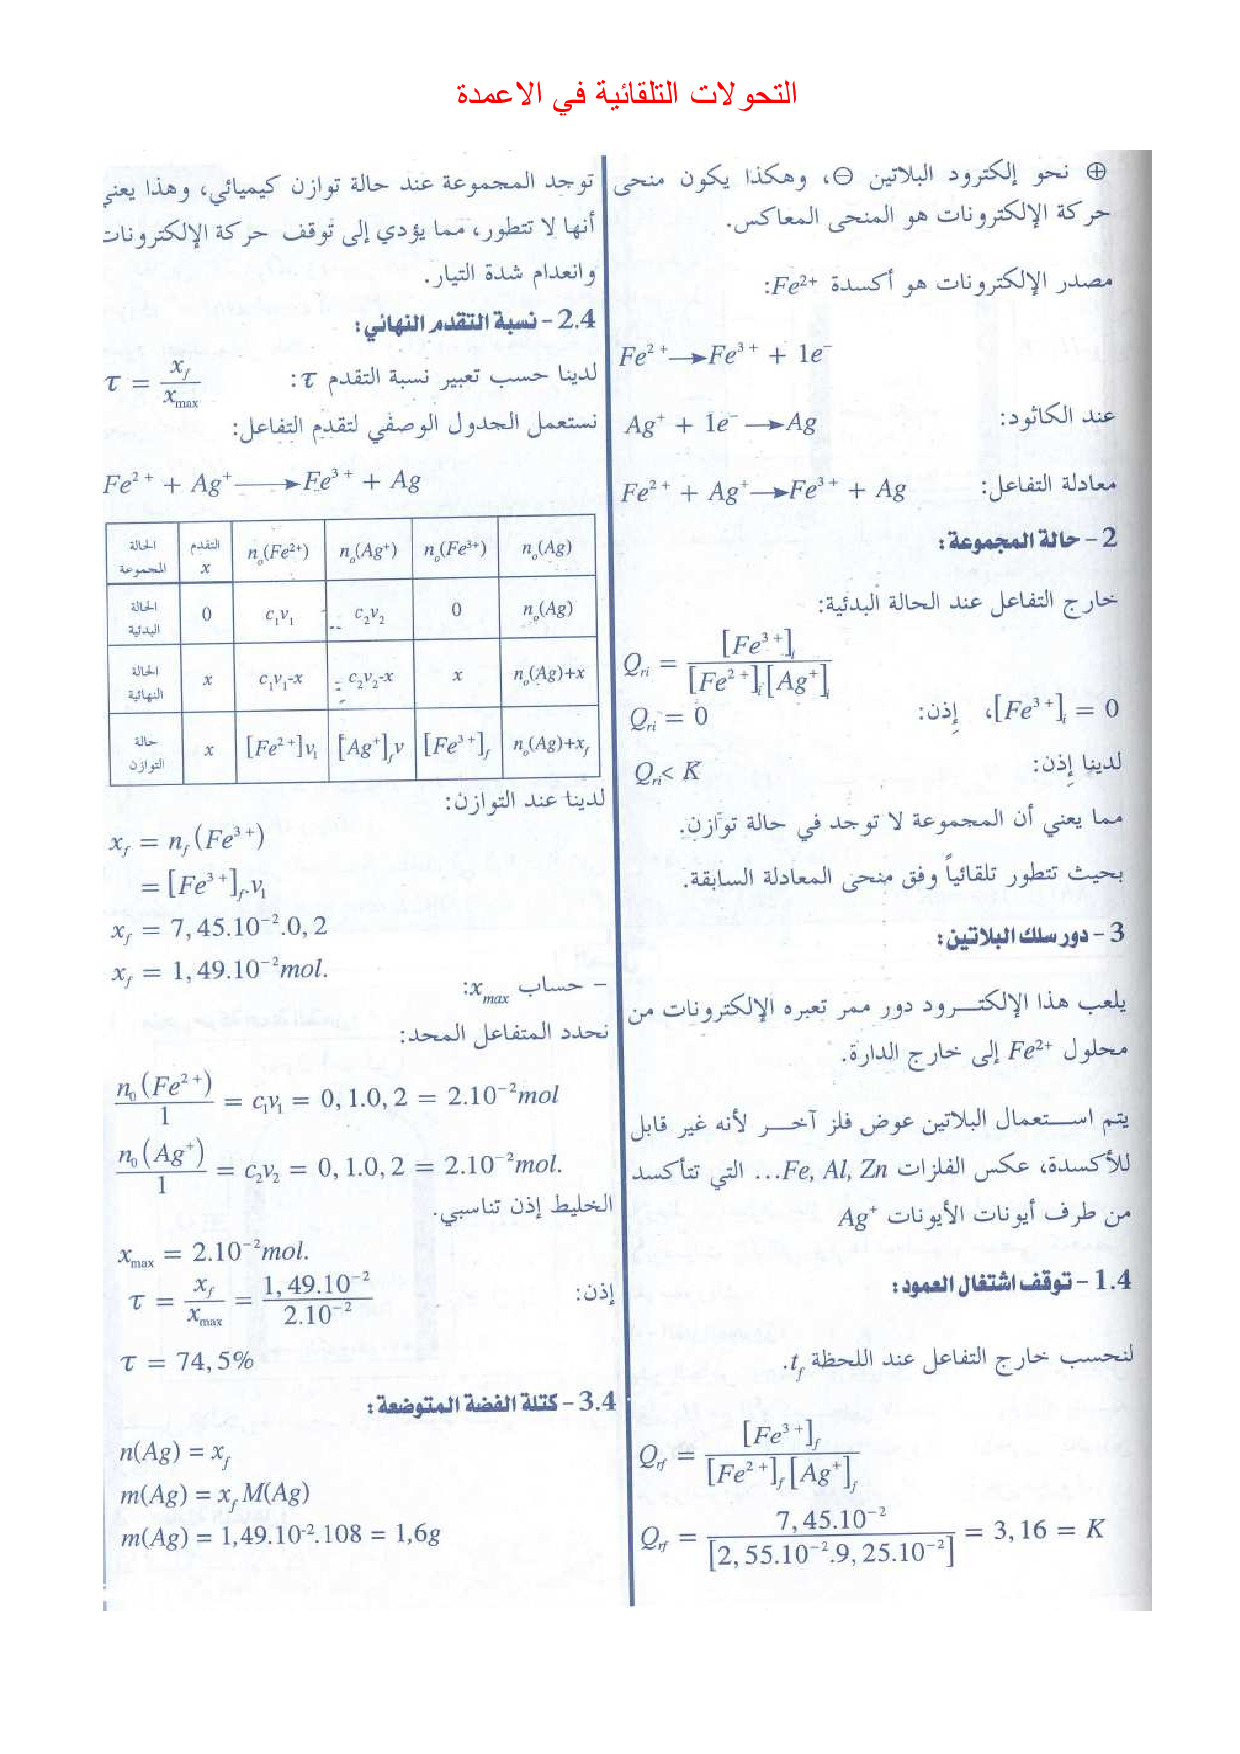 التحولات التلقائية في الاعمدة
⊕ نحو إلكترود البلاتين ⊖، وهكذا يكون منحى
حركة الإلكترونات هو المنحى المعاكس.
مصدر الإلكترونات هو أكسدة Fe²⁺:
Fe²⁺ → Fe³⁺ + 1e⁻
عند الكاثود: Ag⁺ + 1e⁻ → Ag
معادلة التفاعل: Fe²⁺ + Ag⁺ → Fe³⁺ + Ag
2 - حالة المجموعة:
خارج التفاعل عند الحالة البدئية:
Q_ri = [Fe³⁺]_i / [Fe²⁺]_i[Ag⁺]_i
[Fe³⁺]_i = 0، إذن: Q_ri = 0
لدينا إذن: Q_ri < K
مما يعني أن المجموعة لا توجد في حالة توازن.
بحيث تتطور تلقائياً وفق منحى المعادلة السابقة.
3 - دور سلك البلاتين:
يلعب هذا الإلكترود دور ممر تعبره الإلكترونات من
محلول Fe²⁺ إلى خارج الدارة.
يتم استعمال البلاتين عوض فلز آخر لأنه غير قابل
للأكسدة، عكس الفلزات Fe, Al, Zn... التي تتأكسد
من طرف أيونات الأيونات Ag⁺
1.4 - توقف اشتغال العمود:
لنحسب خارج التفاعل عند اللحظة t_f.
Q_rf = [Fe³⁺]_f / [Fe²⁺]_f[Ag⁺]_f
Q_rf = 7,45.10⁻² / [2,55.10⁻².9,25.10⁻²] = 3,16 = K
توجد المجموعة عند حالة توازن كيميائي، وهذا يعني
أنها لا تتطور، مما يؤدي إلى توقف حركة الإلكترونات
وانعدام شدة التيار.
2.4 - نسبة التقدم النهائي:
لدينا حسب تعبير نسبة التقدم τ: τ = x_f / x_max
نستعمل الجدول الوصفي لتقدم التفاعل:
Fe²⁺ + Ag⁺ → Fe³⁺ + Ag
الحالة المجموعة | التقدم x | n₀(Fe²⁺) | n₀(Ag⁺) | n₀(Fe³⁺) | n₀(Ag)
الحالة البدئية | 0 | c₁v₁ | c₂v₂ | 0 | n₀(Ag)
الحالة النهائية | x | c₁v₁-x | c₂v₂-x | x | n₀(Ag)+x
حالة التوازن | x | [Fe²⁺]v₁ | [Ag⁺]_f v | [Fe³⁺]_f | n₀(Ag)+x_f
لدينا عند التوازن:
x_f = n_f(Fe³⁺)
= [Fe³⁺]_f.v₁
x_f = 7,45.10⁻².0,2
x_f = 1,49.10⁻²mol.
- حساب x_max:
نحدد المتفاعل المحد:
n₀(Fe²⁺)/1 = c₁v₁ = 0,1.0,2 = 2.10⁻²mol
n₀(Ag⁺)/1 = c₂v₂ = 0,1.0,2 = 2.10⁻²mol.
الخليط إذن تناسبي.
x_max = 2.10⁻²mol.
إذن: τ = x_f / x_max = 1,49.10⁻² / 2.10⁻²
τ = 74,5%
3.4 - كتلة الفضة المتوضعة:
n(Ag) = x_f
m(Ag) = x_f M(Ag)
m(Ag) = 1,49.10⁻².108 = 1,6g